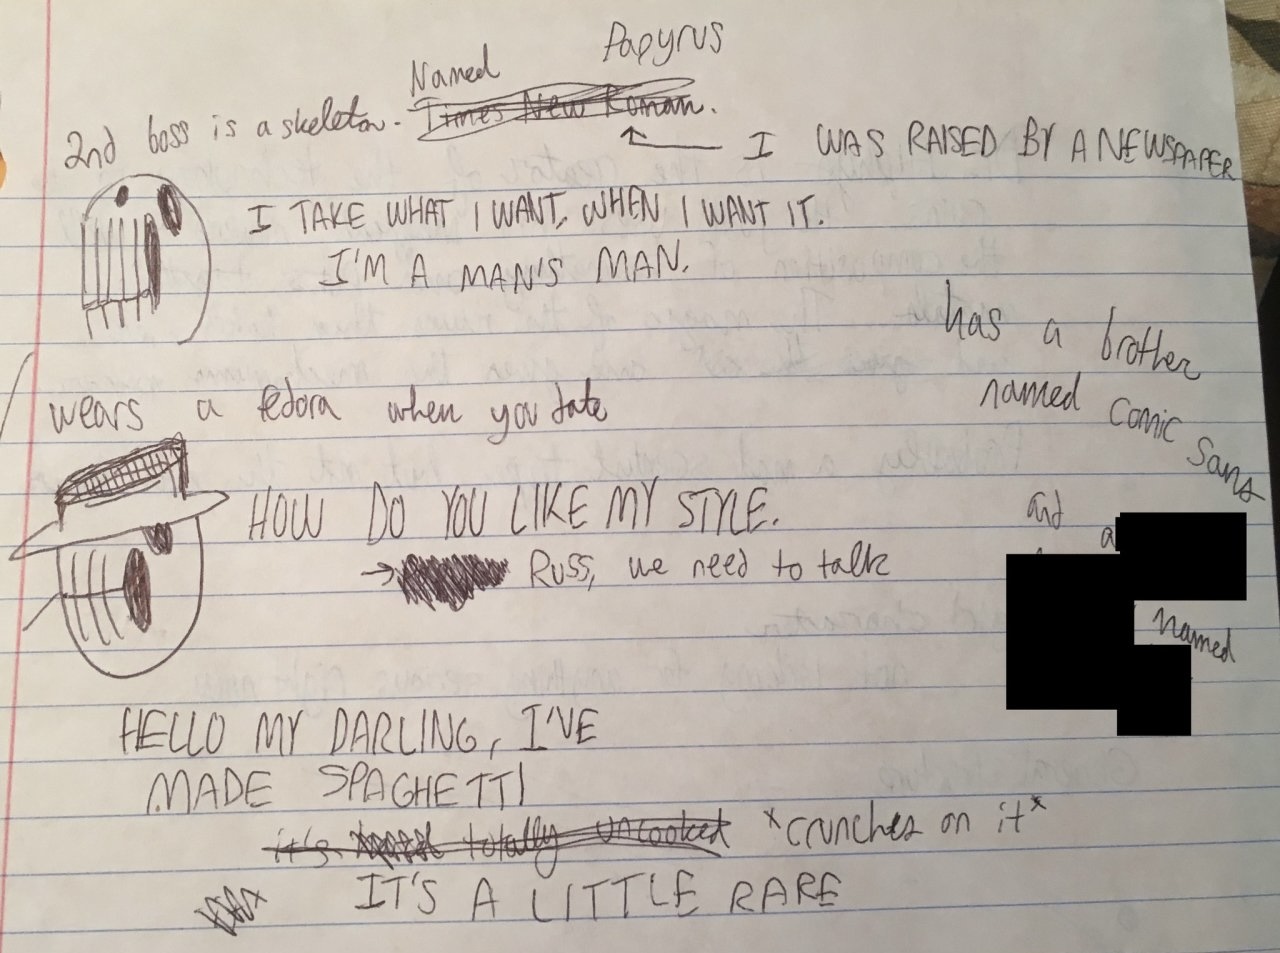 Named Papyrus
2nd boss is a skeleton. Times New Roman.
I WAS RAISED BY A NEWSPAPER
I TAKE WHAT I WANT, WHEN I WANT IT.
I'M A MAN'S MAN.
has a brother
named Comic Sans
wears a fedora when you date
and a
named
HOW DO YOU LIKE MY STYLE.
Russ, we need to talk
HELLO MY DARLING, I'VE
MADE SPAGHETTI
it's totally uncooked *crunches on it*
IT'S A LITTLE RARE